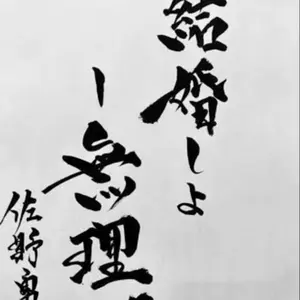 結婚しよ
ー無理
佐野勇